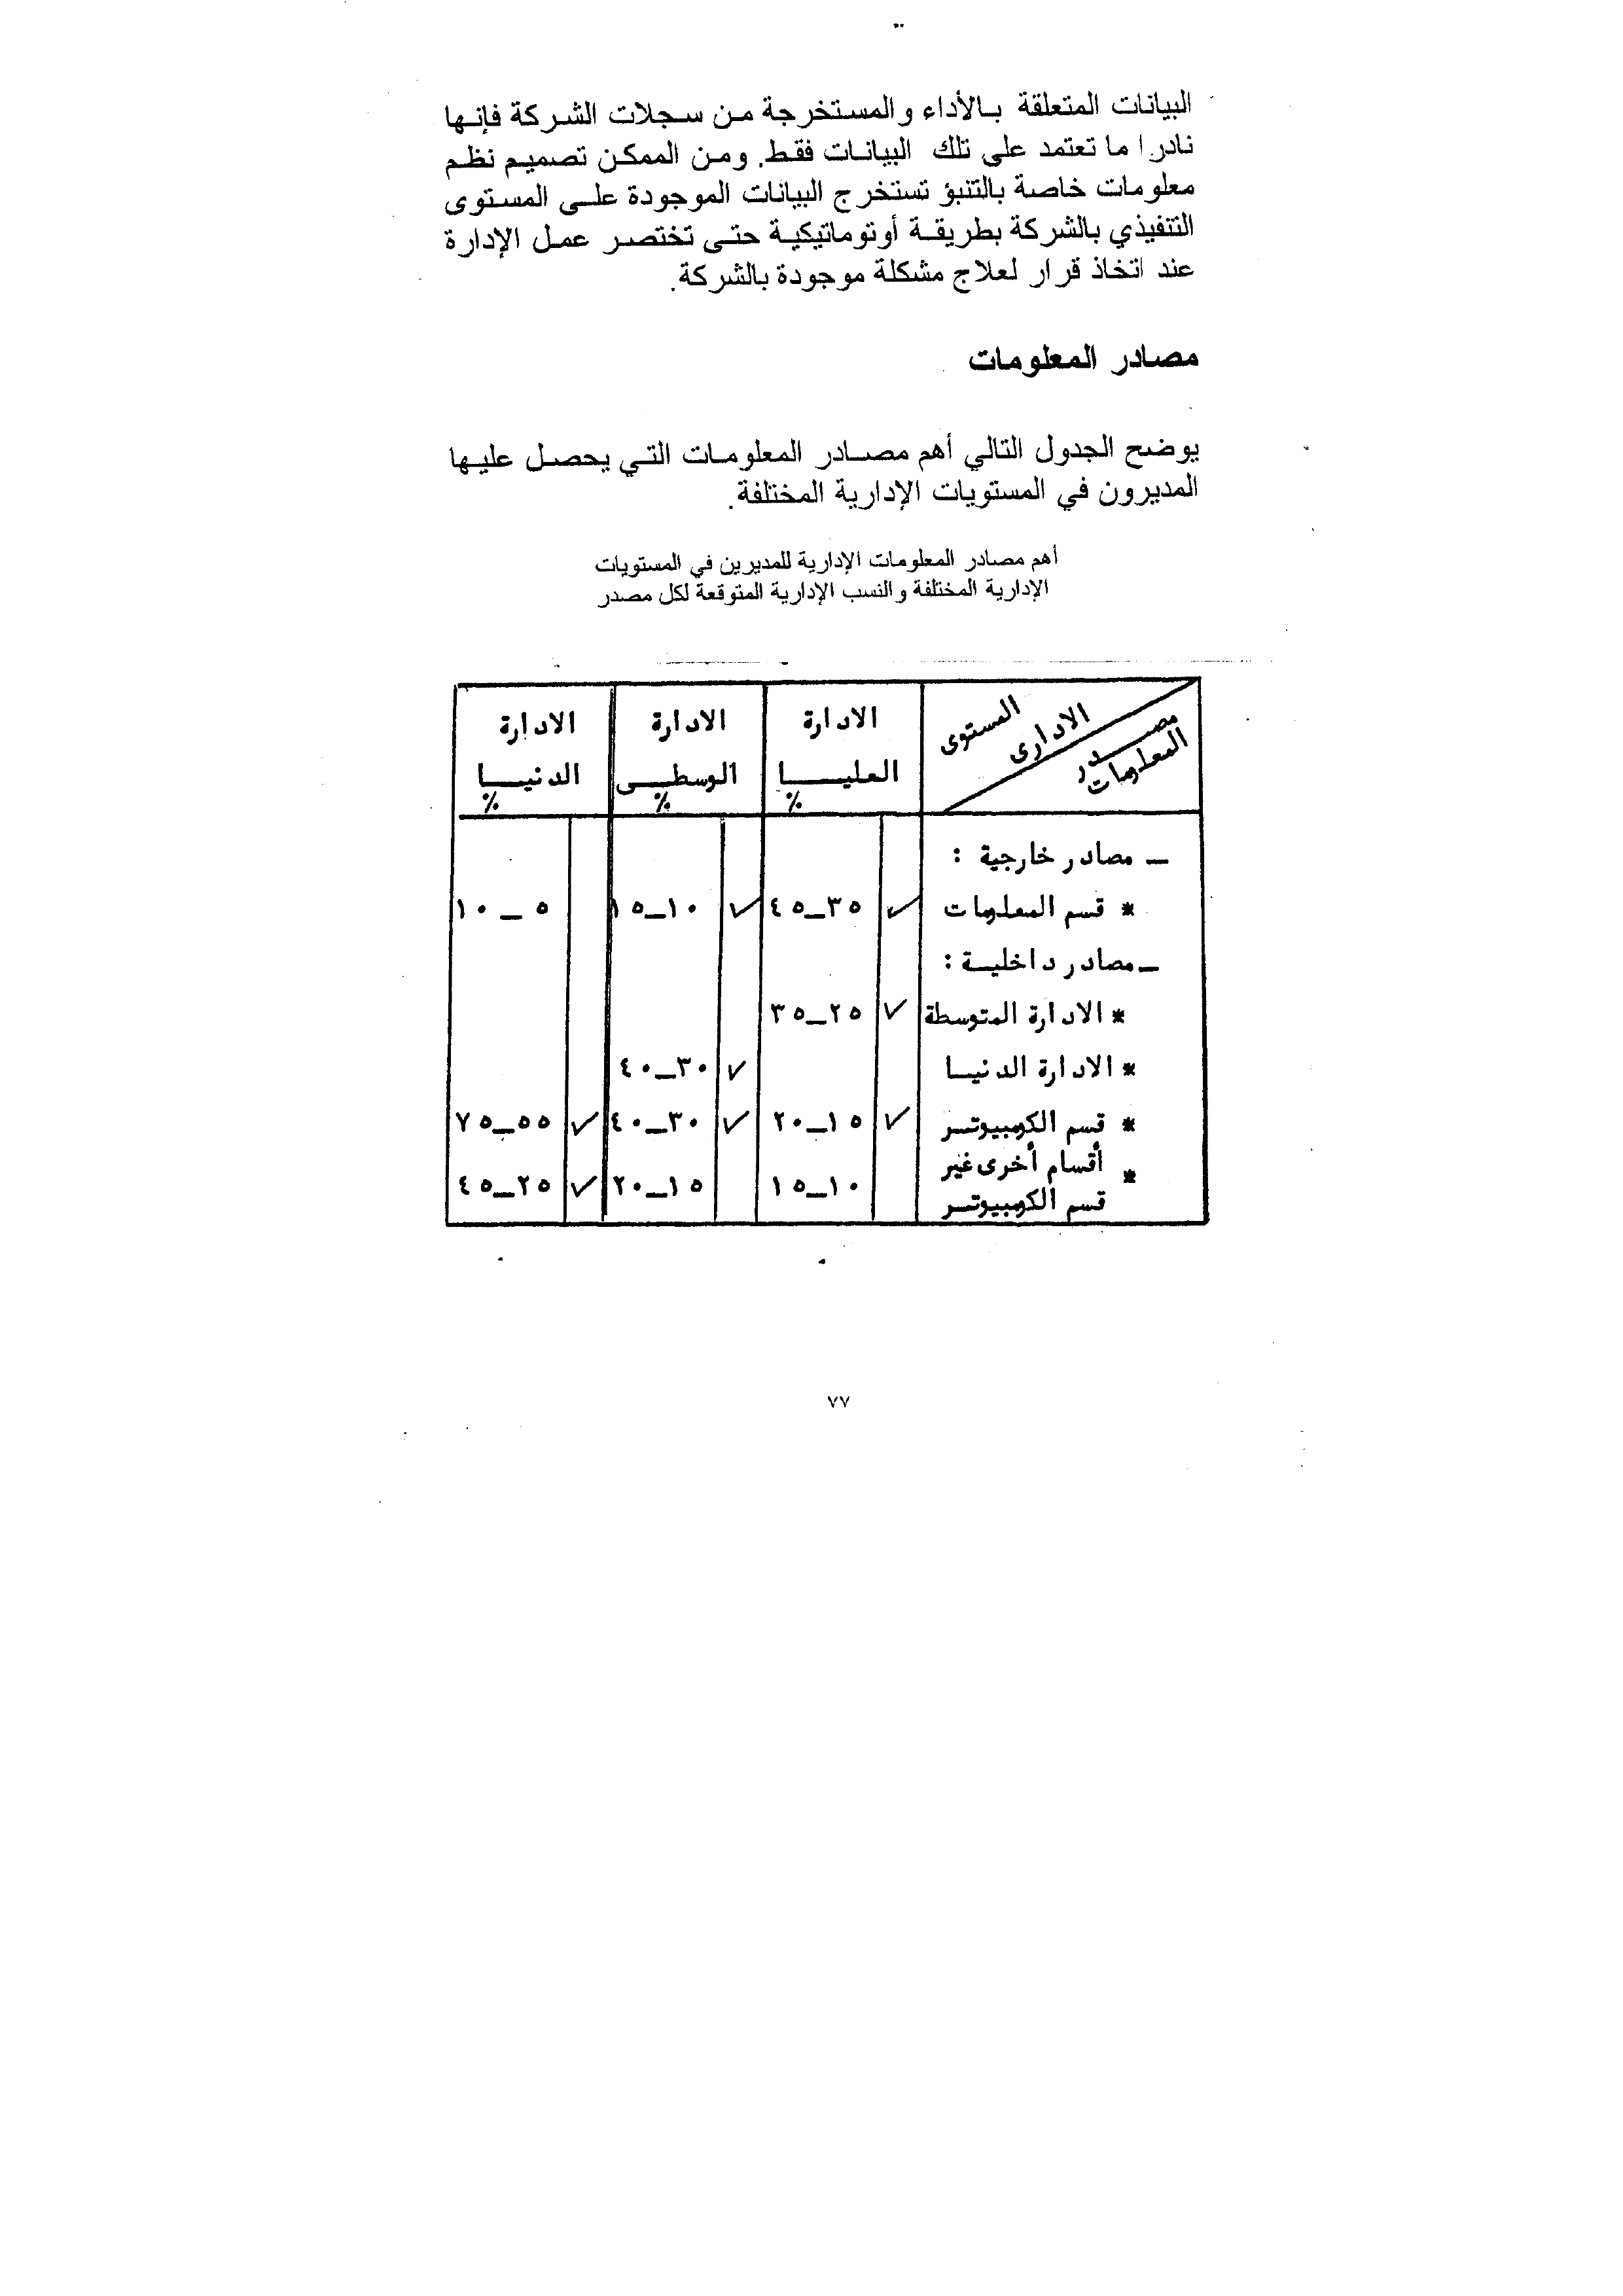 البيانات المتعلقة بالأداء والمستخرجة من سجلات الشركة فإنها
نادرا ما تعتمد على تلك البيانات فقط. ومن الممكن تصميم نظم
معلومات خاصة بالتنبؤ تستخرج البيانات الموجودة على المستوى
التنفيذي بالشركة بطريقة أوتوماتيكية حتى تختصر عمل الإدارة
عند اتخاذ قرار لعلاج مشكلة موجودة بالشركة.
مصادر المعلومات
يوضح الجدول التالي أهم مصادر المعلومات التي يحصل عليها
المديرون في المستويات الإدارية المختلفة.
أهم مصادر المعلومات الإدارية للمديرين في المستويات
الإدارية المختلفة والنسب الإدارية المتوقعة لكل مصدر
المستوى الادارى مصدر المعلومات الادارة العليا % الادارة الوسطى % الادارة الدنيا %
— مصادر خارجية :
* قسم المعلومات ✓ ٣٥—٤٥ ✓ ١٠—١٥ ٥ — ١٠
— مصادر داخلية :
* الادارة المتوسطة ✓ ٢٥—٣٥
* الادارة الدنيا ✓ ٣٠—٤٠
* قسم الكومبيوتر ✓ ١٥—٢٠ ✓ ٣٠—٤٠ ✓ ٥٥—٧٥
* أقسام أخرى غير
قسم الكومبيوتر ١٠—١٥ ١٥—٢٠ ✓ ٢٥—٤٥
٧٧